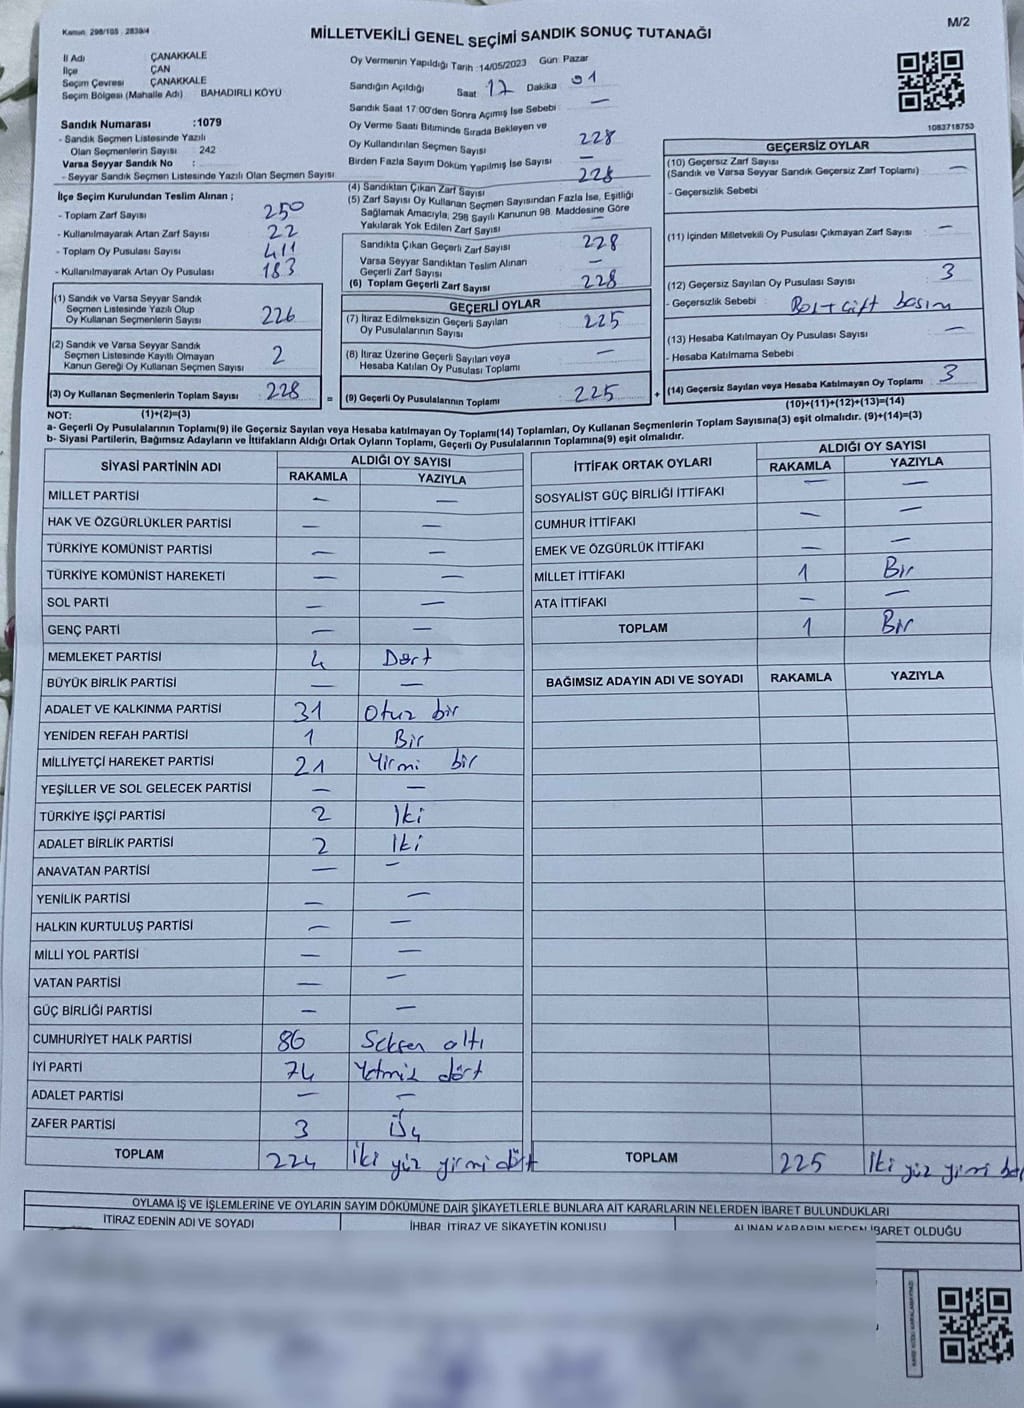 Kanun: 298/105 , 2839/4
M/2
MİLLETVEKİLİ GENEL SEÇİMİ SANDIK SONUÇ TUTANAĞI
İl Adı ÇANAKKALE
İlçe ÇAN
Seçim Çevresi ÇANAKKALE
Seçim Bölgesi (Mahalle Adı) BAHADIRLI KÖYÜ
Sandık Numarası :1079
- Sandık Seçmen Listesinde Yazılı
Olan Seçmenlerin Sayısı 242
Varsa Seyyar Sandık No :
- Seyyar Sandık Seçmen Listesinde Yazılı Olan Seçmen Sayısı
İlçe Seçim Kurulundan Teslim Alınan ;
- Toplam Zarf Sayısı 250
- Kullanılmayarak Artan Zarf Sayısı 22
- Toplam Oy Pusulası Sayısı 411
- Kullanılmayarak Artan Oy Pusulası 183
(1) Sandık ve Varsa Seyyar Sandık
Seçmen Listesinde Yazılı Olup
Oy Kullanan Seçmenlerin Sayısı 226
(2) Sandık ve Varsa Seyyar Sandık
Seçmen Listesinde Kayıtlı Olmayan
Kanun Gereği Oy Kullanan Seçmen Sayısı 2
(3) Oy Kullanan Seçmenlerin Toplam Sayısı 228 =
Oy Vermenin Yapıldığı Tarih :14/05/2023 Gün: Pazar
Sandığın Açıldığı Saat 17 Dakika 01
Sandık Saat 17:00'den Sonra Açımış İse Sebebi : —
Oy Verme Saati Bitiminde Sırada Bekleyen ve
Oy Kullandırılan Seçmen Sayısı 228
Birden Fazla Sayım Döküm Yapılmış İse Sayısı —
(4) Sandıktan Çıkan Zarf Sayısı 228
(5) Zarf Sayısı Oy Kullanan Seçmen Sayısından Fazla İse, Eşitliği
Sağlamak Amacıyla, 298 Sayılı Kanunun 98. Maddesine Göre
Yakılarak Yok Edilen Zarf Sayısı —
Sandıkta Çıkan Geçerli Zarf Sayısı 228
Varsa Seyyar Sandıktan Teslim Alınan
Geçerli Zarf Sayısı —
(6) Toplam Geçerli Zarf Sayısı 228
GEÇERLİ OYLAR
(7) İtiraz Edilmeksizin Geçerli Sayılan
Oy Pusulalarının Sayısı 225
(8) İtiraz Üzerine Geçerli Sayılan veya
Hesaba Katılan Oy Pusulası Toplamı —
(9) Geçerli Oy Pusulalarının Toplamı 225 +
1083718753
GEÇERSİZ OYLAR
(10) Geçersiz Zarf Sayısı
(Sandık ve Varsa Seyyar Sandık Geçersiz Zarf Toplamı) —
- Geçersizlik Sebebi
(11) İçinden Milletvekili Oy Pusulası Çıkmayan Zarf Sayısı —
(12) Geçersiz Sayılan Oy Pusulası Sayısı 3
- Geçersizlik Sebebi : Boş + çift basım
(13) Hesaba Katılmayan Oy Pusulası Sayısı —
- Hesaba Katılmama Sebebi
(14) Geçersiz Sayılan veya Hesaba Katılmayan Oy Toplamı 3
NOT: (1)+(2)=(3) (10)+(11)+(12)+(13)=(14)
a- Geçerli Oy Pusulalarının Toplamı(9) ile Geçersiz Sayılan veya Hesaba katılmayan Oy Toplamı(14) Toplamları, Oy Kullanan Seçmenlerin Toplam Sayısına(3) eşit olmalıdır. (9)+(14)=(3)
b- Siyasi Partilerin, Bağımsız Adayların ve İttifakların Aldığı Ortak Oyların Toplamı, Geçerli Oy Pusulalarının Toplamına(9) eşit olmalıdır.
SİYASİ PARTİNİN ADI ALDIĞI OY SAYISI
RAKAMLA YAZIYLA
MİLLET PARTİSİ — —
HAK VE ÖZGÜRLÜKLER PARTİSİ — —
TÜRKİYE KOMÜNİST PARTİSİ — —
TÜRKİYE KOMÜNİST HAREKETİ — —
SOL PARTİ — —
GENÇ PARTİ — —
MEMLEKET PARTİSİ 4 Dört
BÜYÜK BİRLİK PARTİSİ — —
ADALET VE KALKINMA PARTİSİ 31 Otuz bir
YENİDEN REFAH PARTİSİ 1 Bir
MİLLİYETÇİ HAREKET PARTİSİ 21 Yirmi bir
YEŞİLLER VE SOL GELECEK PARTİSİ — —
TÜRKİYE İŞÇİ PARTİSİ 2 İki
ADALET BİRLİK PARTİSİ 2 İki
ANAVATAN PARTİSİ — —
YENİLİK PARTİSİ — —
HALKIN KURTULUŞ PARTİSİ — —
MİLLİ YOL PARTİSİ — —
VATAN PARTİSİ — —
GÜÇ BİRLİĞİ PARTİSİ — —
CUMHURİYET HALK PARTİSİ 86 Seksen altı
İYİ PARTİ 74 Yetmiş dört
ADALET PARTİSİ — —
ZAFER PARTİSİ 3 üç
TOPLAM 224 İki yüz yirmi dört
İTTİFAK ORTAK OYLARI ALDIĞI OY SAYISI
RAKAMLA YAZIYLA
SOSYALİST GÜÇ BİRLİĞİ İTTİFAKI — —
CUMHUR İTTİFAKI — —
EMEK VE ÖZGÜRLÜK İTTİFAKI — —
MİLLET İTTİFAKI 1 Bir
ATA İTTİFAKI — —
TOPLAM 1 Bir
BAĞIMSIZ ADAYIN ADI VE SOYADI RAKAMLA YAZIYLA
TOPLAM 225 İki yüz yirmi
OYLAMA İŞ VE İŞLEMLERİNE VE OYLARIN SAYIM DÖKÜMÜNE DAİR ŞİKAYETLERLE BUNLARA AİT KARARLARIN NELERDEN İBARET BULUNDUKLARI
İTİRAZ EDENİN ADI VE SOYADI İHBAR, İTİRAZ VE ŞİKAYETİN KONUSU ALINAN KARARIN NEDEN İBARET OLDUĞU